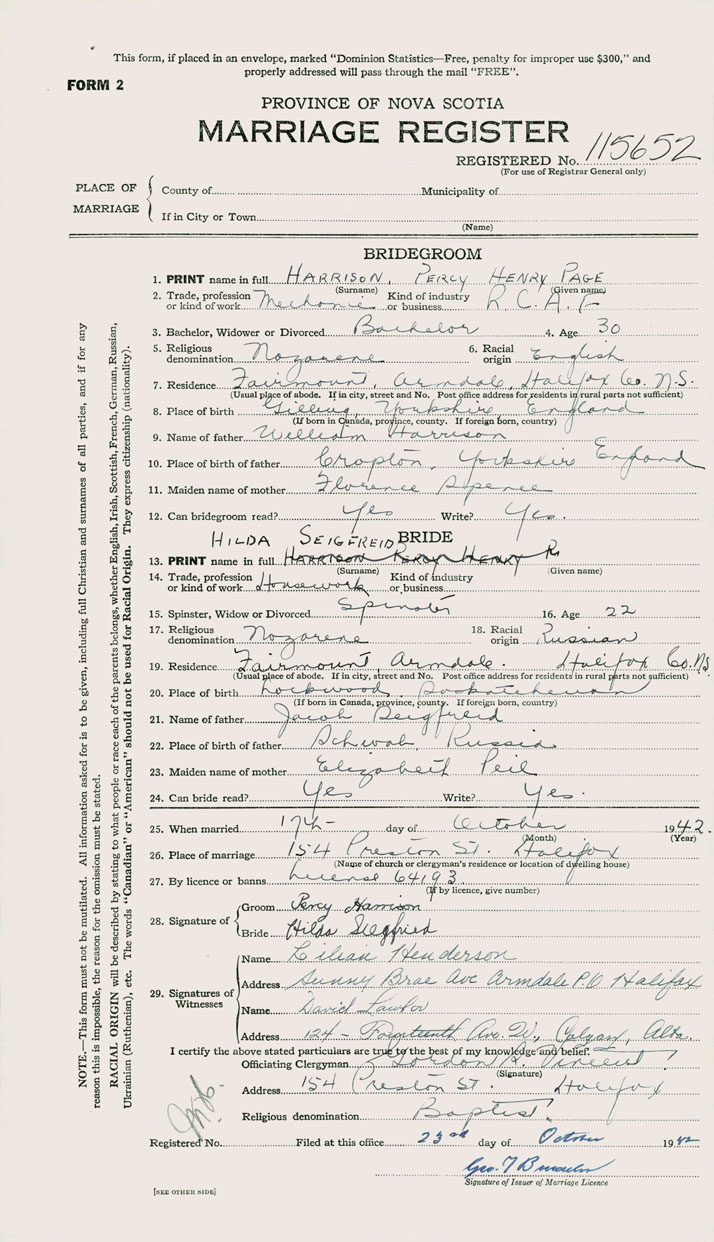 This form, if placed in an envelope, marked "Dominion Statistics—Free, penalty for improper use $300," and
properly addressed will pass through the mail "FREE".
FORM 2
PROVINCE OF NOVA SCOTIA
MARRIAGE REGISTER
REGISTERED No. 115652
(For use of Registrar General only)
PLACE OF MARRIAGE
County of Municipality of
If in City or Town
(Name)
BRIDEGROOM
1. PRINT name in full HARRISON, PERCY HENRY PAGE
(Surname) (Given name)
2. Trade, profession or kind of work Mechanic Kind of industry or business R.C.A.F
3. Bachelor, Widower or Divorced Bachelor 4. Age 30
5. Religious denomination Nazarene 6. Racial origin English
7. Residence Fairmount, Armdale, Halifax Co. N.S.
(Usual place of abode. If in city, street and No. Post office address for residents in rural parts not sufficient)
8. Place of birth Gilling, Yorkshire England
(If born in Canada, province, county. If foreign born, country)
9. Name of father William Harrison
10. Place of birth of father Cropton, Yorkshire England
11. Maiden name of mother Florence Spence
12. Can bridegroom read? Yes Write? Yes.
BRIDE
HILDA SEIGFREID
13. PRINT name in full HARRISON PERCY HENRY P
(Surname) (Given name)
14. Trade, profession or kind of work Housework Kind of industry or business
15. Spinster, Widow or Divorced Spinster 16. Age 22
17. Religious denomination Nazarene 18. Racial origin Russian
19. Residence Fairmount, Armdale. Halifax Co. N.S.
(Usual place of abode. If in city, street and No. Post office address for residents in rural parts not sufficient)
20. Place of birth Lockwood, Saskatchewan
(If born in Canada, province, county. If foreign born, country)
21. Name of father Jacob Seigfreid
22. Place of birth of father Schwab, Russia
23. Maiden name of mother Elizabeth Peil
24. Can bride read? Yes Write? Yes.
25. When married 17th day of October 1942.
(Month) (Year)
26. Place of marriage 154 Preston St. Halifax
(Name of church or clergyman's residence or location of dwelling house)
27. By licence or banns License 64193
(If by licence, give number)
28. Signature of
Groom Percy Harrison
Bride Hilda Siegfried
29. Signatures of Witnesses
Name Lilian Henderson
Address Sunny Brae Ave Armdale P.O Halifax
Name David Lawlor
Address 124 - Fourteenth Ave. W., Calgary, Alta.
I certify the above stated particulars are true to the best of my knowledge and belief.
Officiating Clergyman Gordon R. Vincent
(Signature)
Address 154 Preston St. Halifax
Religious denomination Baptist.
Registered No. Filed at this office 23rd day of October 1942
Geo. T
Signature of Issuer of Marriage Licence
[SEE OTHER SIDE]
NOTE.—This form must not be mutilated. All information asked for is to be given, including full Christian and surnames of all parties, and if for any
reason this is impossible, the reason for the omission must be stated.
RACIAL ORIGIN will be described by stating to what people or race each of the parents belongs, whether English, Irish, Scottish, French, German, Russian,
Ukrainian (Ruthenian), etc. The words "Canadian" or "American" should not be used for Racial Origin. They express citizenship (nationality).